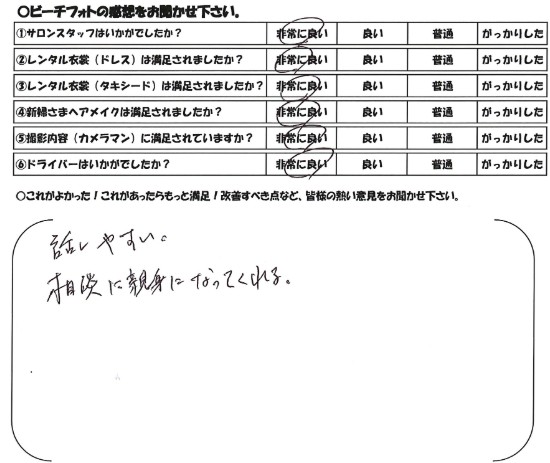 ○ビーチフォトの感想をお聞かせ下さい。
①サロンスタッフはいかがでしたか？ 非常に良い 良い 普通 がっかりした
②レンタル衣裳（ドレス）は満足されましたか？ 非常に良い 良い 普通 がっかりした
③レンタル衣裳（タキシード）は満足されましたか？ 非常に良い 良い 普通 がっかりした
④新婦さまヘアメイクは満足されましたか？ 非常に良い 良い 普通 がっかりした
⑤撮影内容（カメラマン）に満足されていますか？ 非常に良い 良い 普通 がっかりした
⑥ドライバーはいかがでしたか？ 非常に良い 良い 普通 がっかりした
○これがよかった！これがあったらもっと満足！改善すべき点など、皆様の熱い意見をお聞かせ下さい。
話しやすい。
相談に親身になってくれる。